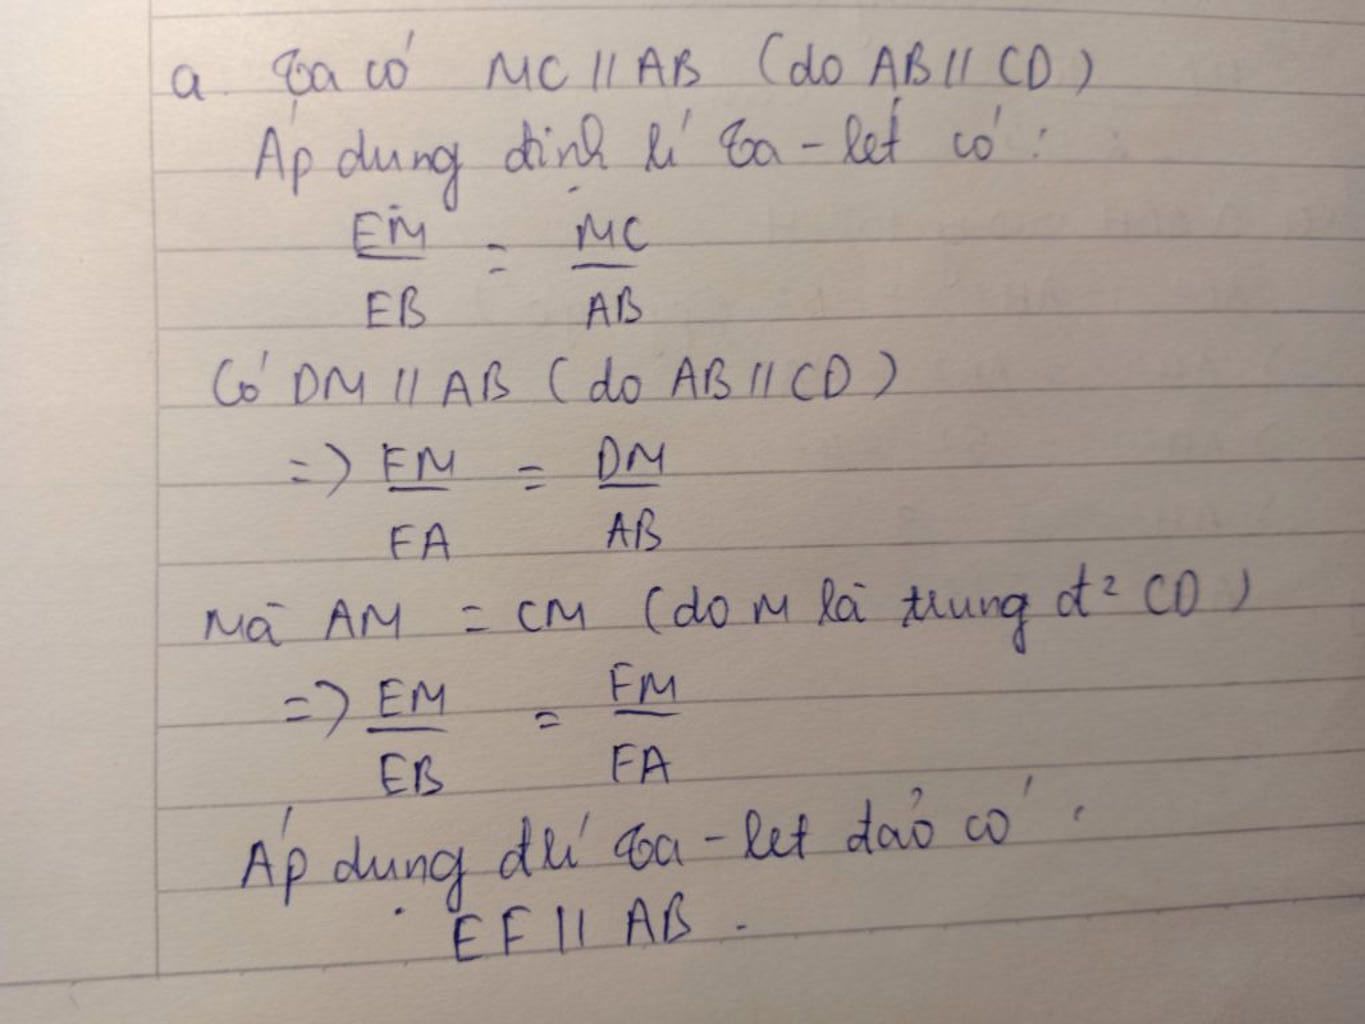 a. Ta có MC // AB (do AB // CD)
Áp dụng định lí Ta-lét có:
EM = MC
EB AB
Có DM // AB (do AB // CD)
=> FM = DM
FA AB
Mà AM = CM (do M là trung đ² CD)
=> EM = FM
EB FA
Áp dụng đlí Ta-let đảo có:
EF // AB.